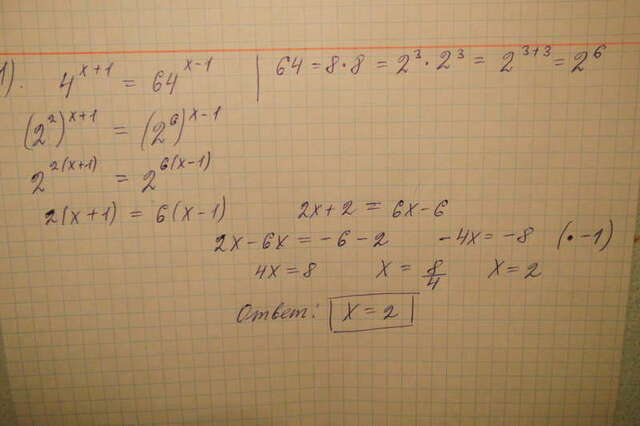 1). 4^{x+1} = 64^{x-1} | 64 = 8 • 8 = 2^3 • 2^3 = 2^{3+3} = 2^6
(2^2)^{x+1} = (2^6)^{x-1}
2^{2(x+1)} = 2^{6(x-1)}
2(x+1) = 6(x-1) 2x+2 = 6x-6
2x-6x = -6-2 -4x = -8 (• -1)
4x = 8 x = 8/4 x = 2
Ответ: x = 2